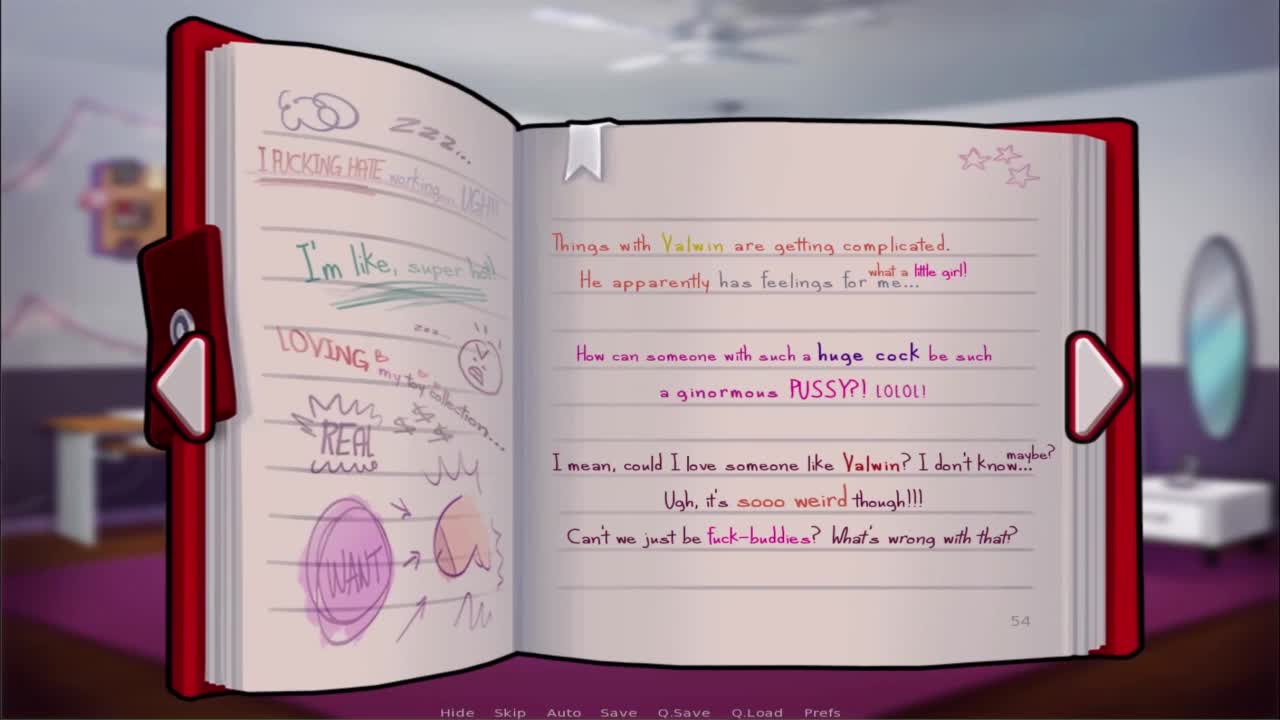 zzz...
I FUCKING HATE working... UGH!!
I'm like, super hot!
zzz...
LOVING
my toy collection...
REAL
WANT
Things with Valwin are getting complicated.
what a little girl!
He apparently has feelings for me...
How can someone with such a huge cock be such
a ginormous PUSSY?! LOLOL!
maybe?
I mean, could I love someone like Valwin? I don't know...
Ugh, it's sooo weird though!!!
Can't we just be fuck-buddies? What's wrong with that?
54
Hide Skip Auto Save Q.Save Q.Load Prefs